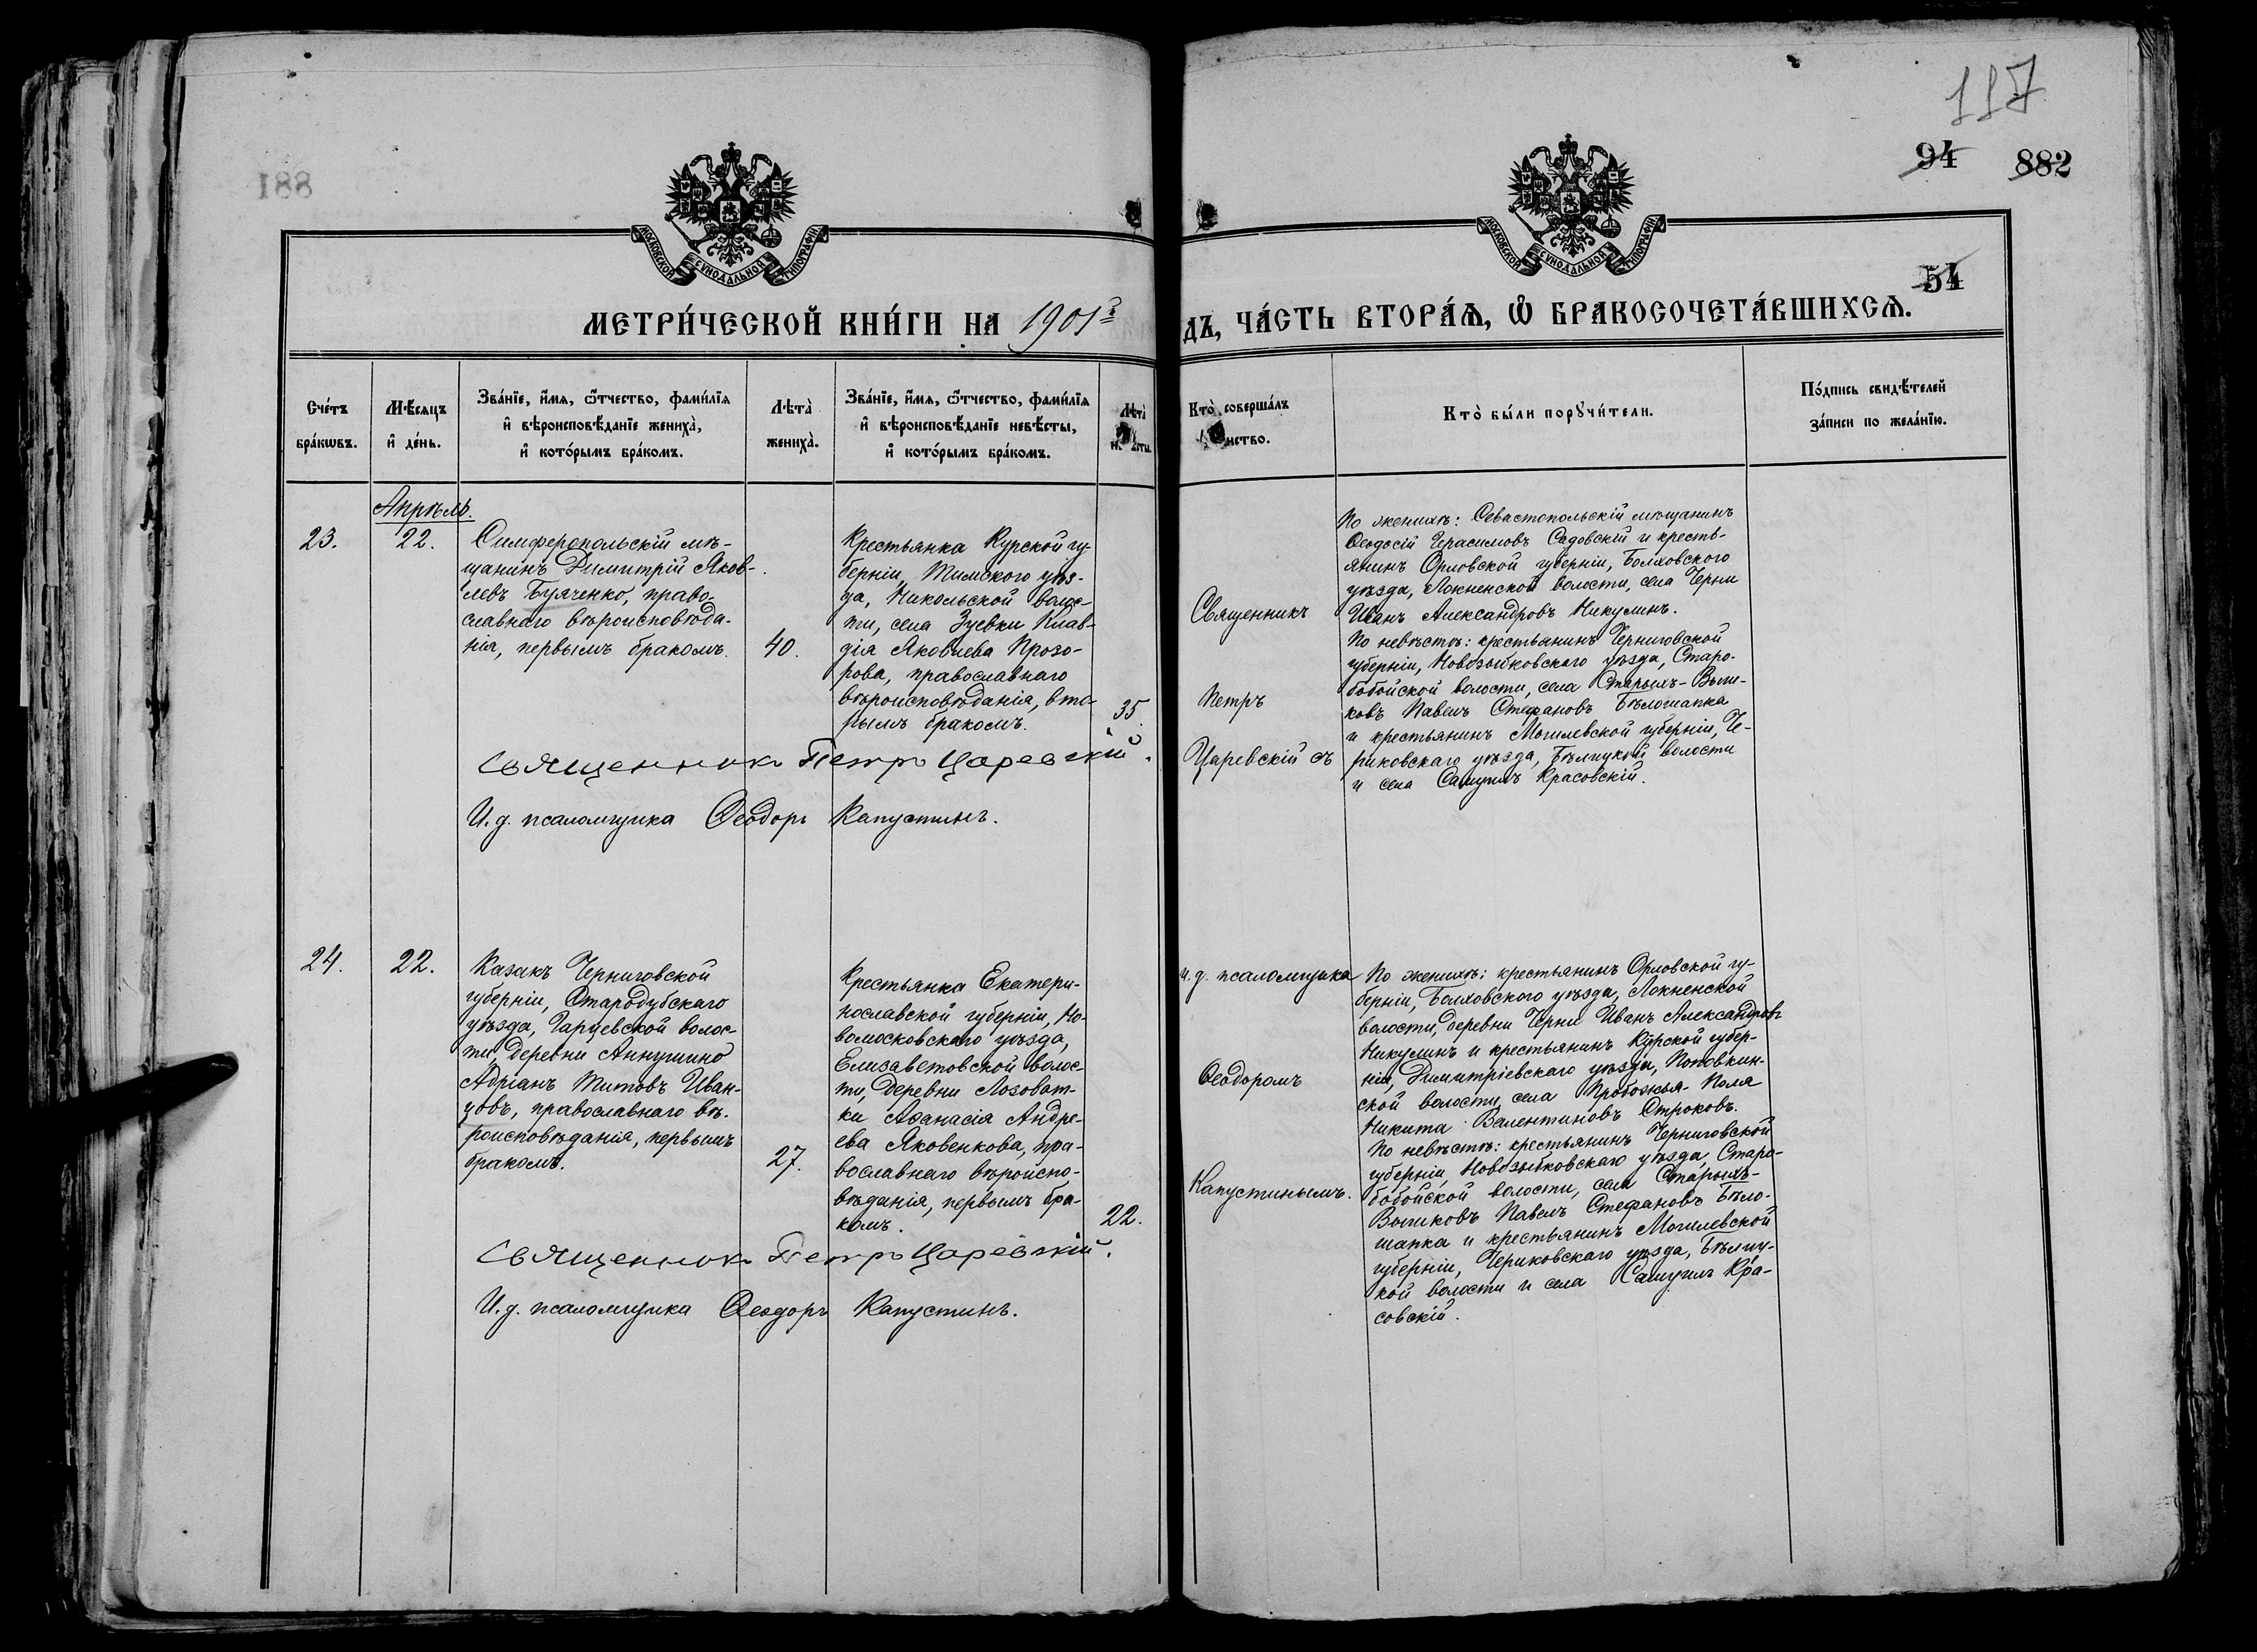 117
94 882
881
МОСКОВСКОЙ СѴНОДАЛЬНОЙ ТИПОГРАФІИ
МОСКОВСКОЙ СѴНОДАЛЬНОЙ ТИПОГРАФІИ
54
МЕТРИ́ЧЕСКОЙ КНИ́ГИ НА 1901й
ДЪ, ЧА́СТЬ ВТОРА́Я, Ѽ БРАКОСОЧЕТА́ВШИХСЯ.
Сче́тъ
бра́кѡвъ.
Мѣ́сяцъ
и҆ де́нь.
Зва́нїе, и҆́мя, ѻ҆́тчество, фами́лїя
и҆ вѣроисповѣ́данїе жениха̀,
и҆ кото́рымъ бра́комъ.
Лѣта̀
жениха̀.
Зва́нїе, и҆́мя, ѻ҆́тчество, фами́лїя
и҆ вѣроисповѣ́данїе невѣ́сты,
и҆ кото́рымъ бра́комъ.
Лѣта̀
Кто̀ соверша́лъ
Кто̀ бы́ли порꙋчи́тели.
По́дпись свидѣ́телей
за́писи по жела́нїю.
Апрѣль.
23.
22.
Симферопольскій мѣ-
щанинъ Димитрій Яков-
левъ Буяченко, право-
славнаго вѣроисповѣда-
нія, первымъ бракомъ.
40.
Крестьянка Курской гу-
берніи, Тимскаго уѣз-
да, Никольской волос-
ти, села Зуевки Клав-
дія Яковлева Прозо-
рова, православнаго
вѣроисповѣданія, вто-
рымъ бракомъ.
35.
Священникъ Петръ Царевскій.
И. д. псаломщика Ѳеодоръ Капустинъ.
Священникъ
Петръ
Царевскій съ
По женихѣ: Севастопольскій мѣщанинъ
Ѳеодосій Герасимовъ Садовскій и кресть-
янинъ Орловской губерніи, Болховского
уѣзда, Локненской волости, села Черни
Иванъ Александровъ Никулинъ.
По невѣстѣ: крестьянинъ Черниговской
губерніи, Новозыбковскаго уѣзда, Старо-
бобойской волости, села Старыхъ-Выш-
ковъ Павелъ Стефановъ Бѣлошапка
и крестьянинъ Могилевской губерніи, Че-
риковскаго уѣзда, Бѣлицкой волости
и села Самуилъ Красовскій.
24.
22.
Казакъ Черниговской
губерніи, Стародубскаго
уѣзда, Гарцевской волос-
ти, деревни Аннушино
Адріанъ Титовъ Иван-
цовъ, православнаго вѣ-
роисповѣданія, первымъ
бракомъ.
27.
Крестьянка Екатери-
нославской губерніи, Но-
вомосковскаго уѣзда,
Елисаветовской волос-
ти, деревни Лозоват-
ки Аѳанасія Андре-
ева Яковенкова, пра-
вославнаго вѣроиспо-
вѣданія, первымъ бра-
комъ.
22.
Священникъ Петръ Царевскій.
И. д. псаломщика Ѳеодоръ Капустинъ.
и. д. псаломщика
Ѳеодоромъ
Капустинымъ.
По женихѣ: крестьянинъ Орловской гу-
берніи, Болховского уѣзда, Локненской
волости, деревни Черни Иванъ Александровъ
Никулинъ и крестьянинъ Курской губер-
ніи, Димитріевскаго уѣзда, Поповкин-
ской волости, села Пробожья-Поля
Никита Валентиновъ Строковъ.
По невѣстѣ: крестьянинъ Черниговской
губерніи, Новозыбковскаго уѣзда, Старо-
бобойской волости, села Старыхъ-
Вышковъ Павелъ Стефановъ Бѣло-
шапка и крестьянинъ Могилевской
губерніи, Чериковскаго уѣзда, Бѣлиц-
кой волости и села Самуилъ Кра-
совскій.